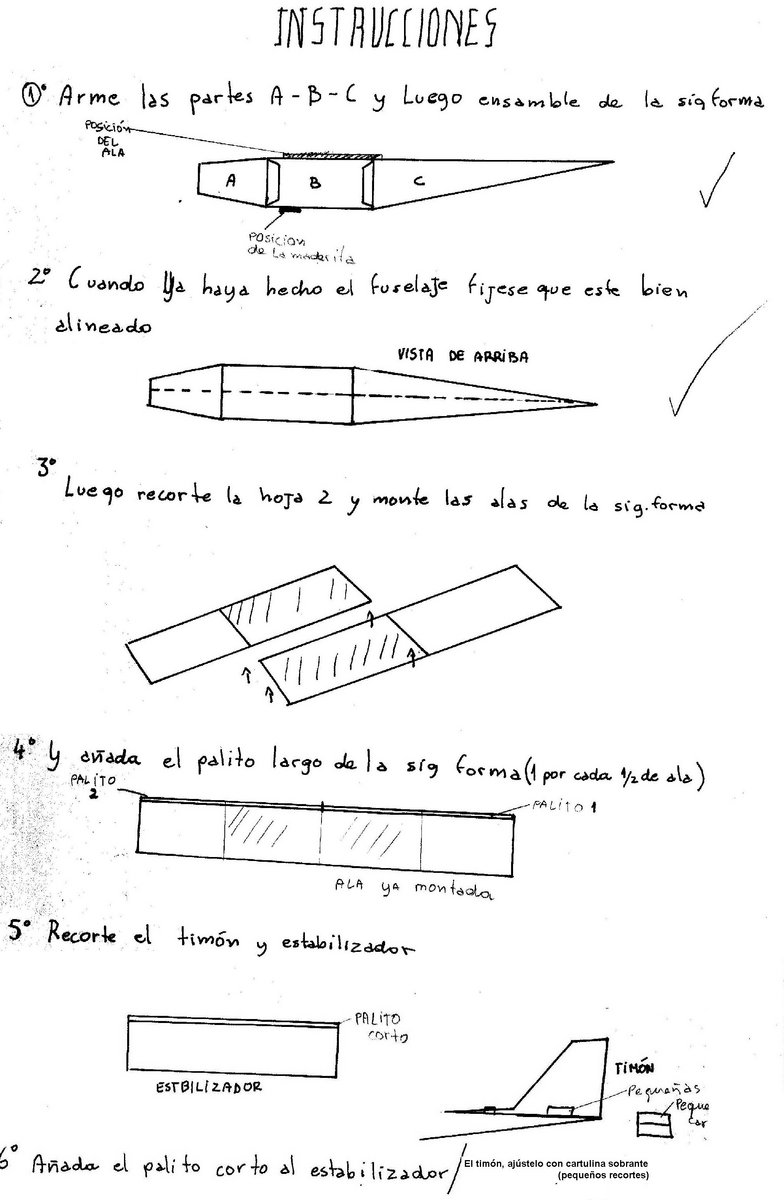 INSTRUCCIONES
1° Arme las partes A-B-C y Luego ensamble de la sig forma
POSICIÓN
DEL
ALA
A
B
C
POSICION
de La maderita
2° Cuando Ya haya hecho el fuselaje fijese que este bien
alineado
VISTA DE ARRIBA
3°
Luego recorte la hoja 2 y monte las alas de la sig. forma
4° Y añada el palito largo de la sig forma (1 por cada 1/2 de ala)
PALITO
2
PALITO 1
ALA YA montada
5° Recorte el timón y estabilizador
PALITO
corto
ESTBILIZADOR
TIMÓN
Pequeñas
Peque
car
6° Añada el palito corto al estabilizador /
El timón, ajústelo con cartulina sobrante
(pequeños recortes)